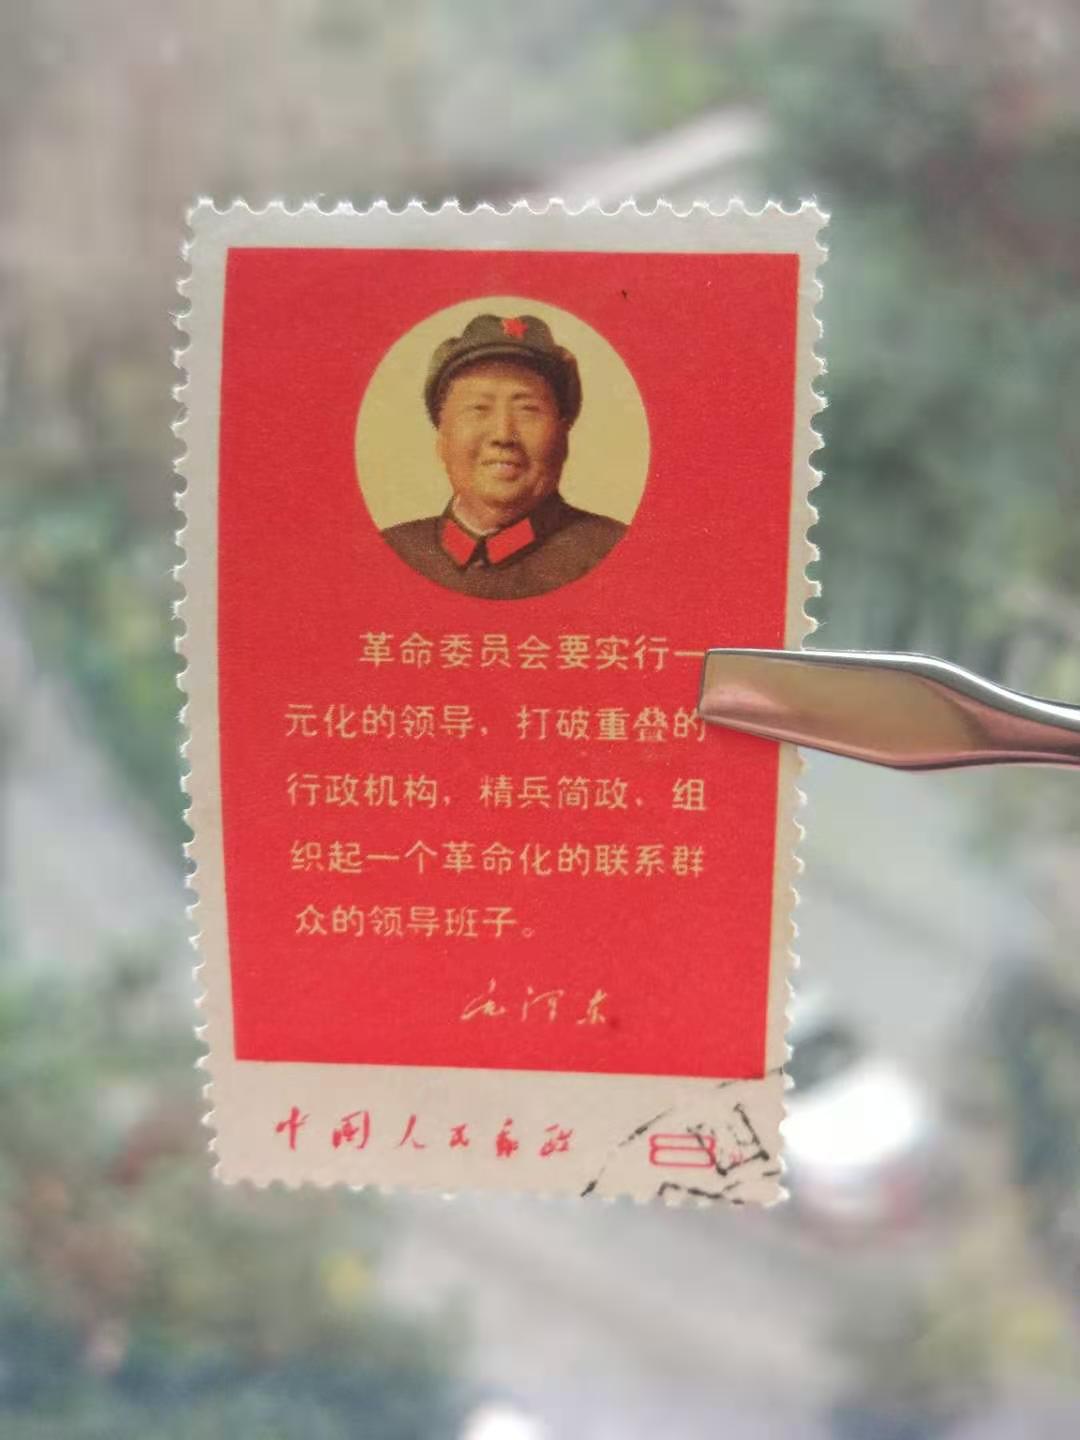 革命委员会要实行一
元化的领导，打破重叠的
行政机构，精兵简政，组
织起一个革命化的联系群
众的领导班子。
毛泽东
中国人民邮政
8